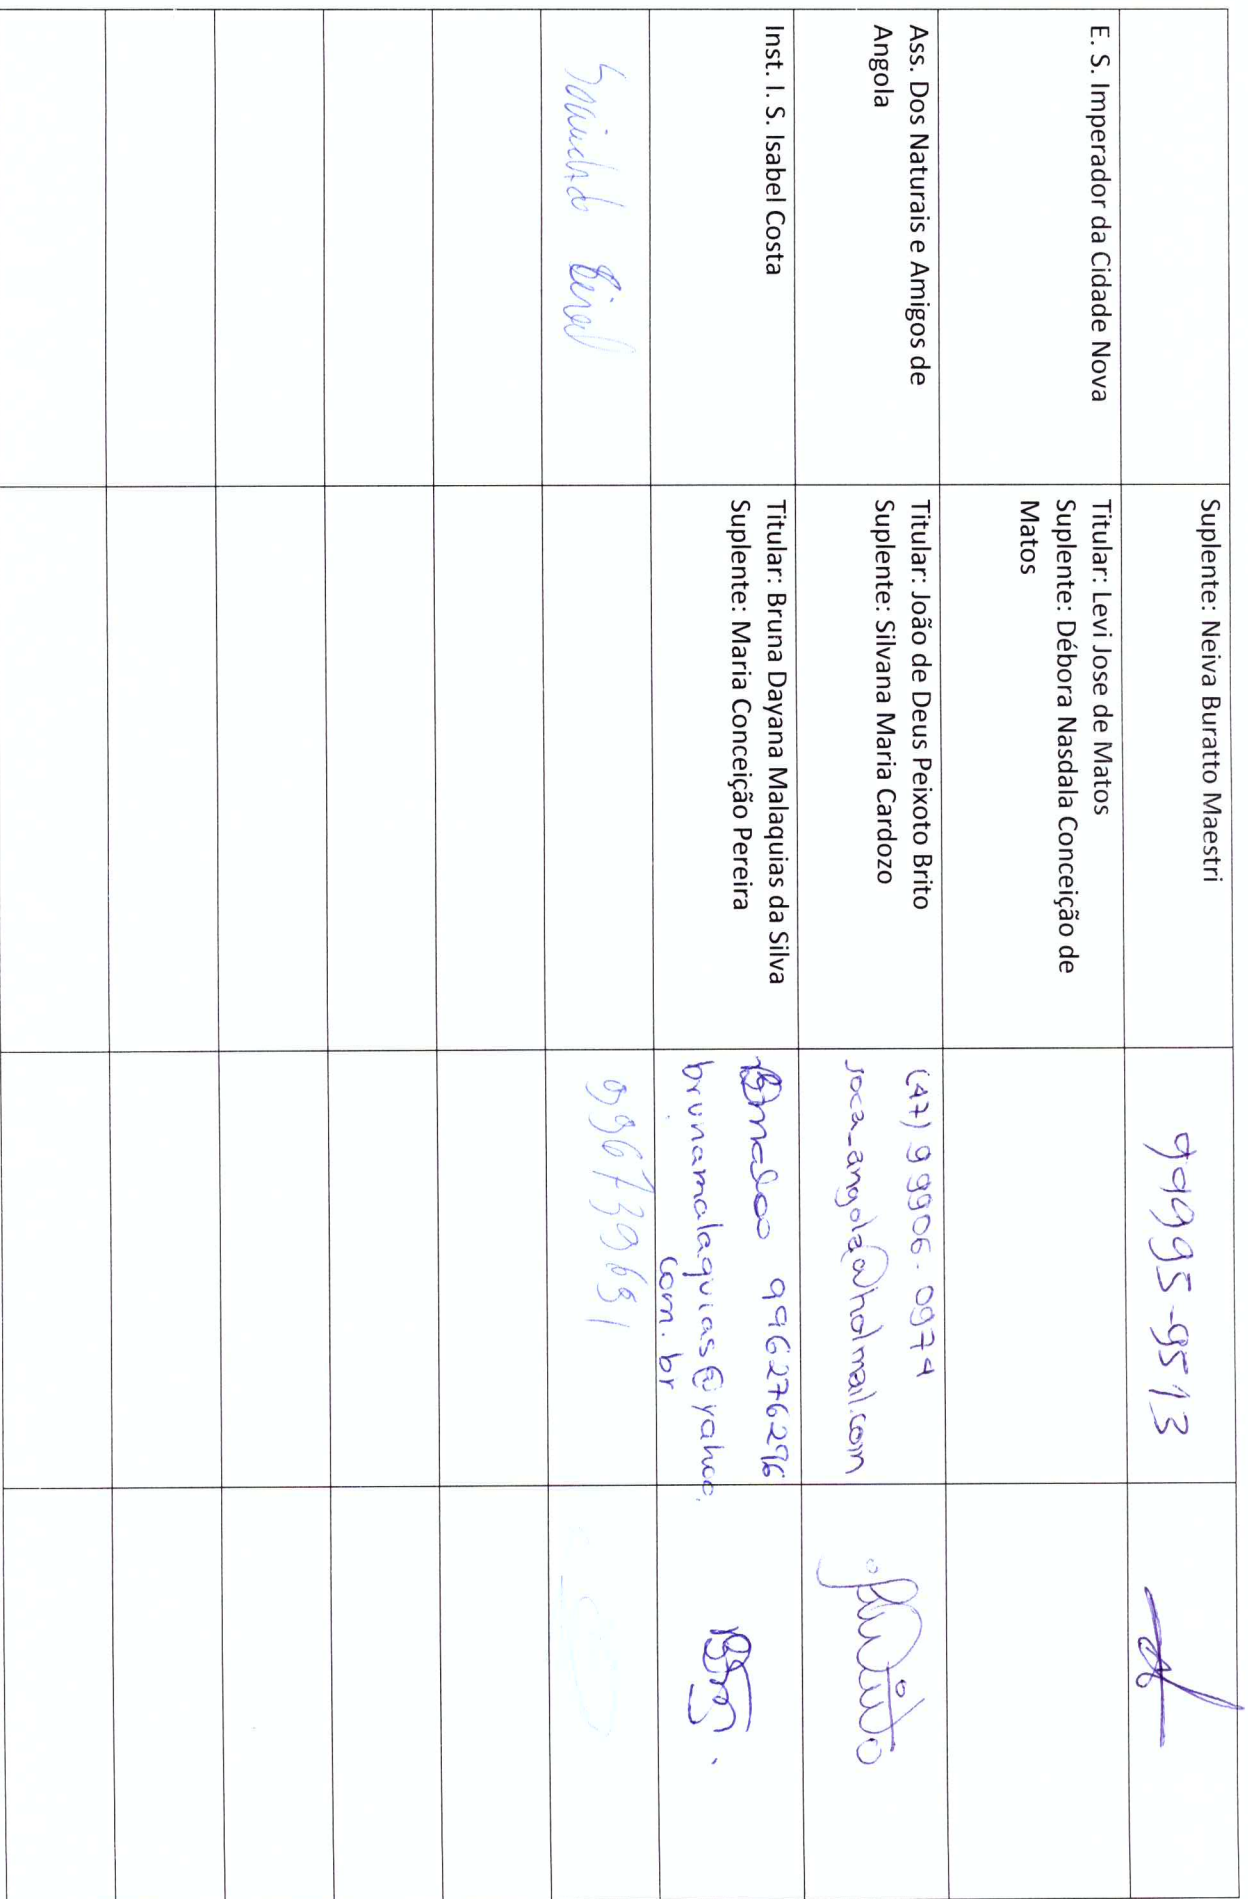 Suplente: Neiva Buratto Maestri
99995-9513
E. S. Imperador da Cidade Nova
Titular: Levi Jose de Matos
Suplente: Débora Nasdala Conceição de
Matos
Ass. Dos Naturais e Amigos de
Angola
Titular: João de Deus Peixoto Brito
Suplente: Silvana Maria Cardozo
(47) 99906.0974
joca_angola@hotmail.com
Inst. I. S. Isabel Costa
Titular: Bruna Dayana Malaquias da Silva
Suplente: Maria Conceição Pereira
996276296
brunamalaquias@yahoo.
com.br